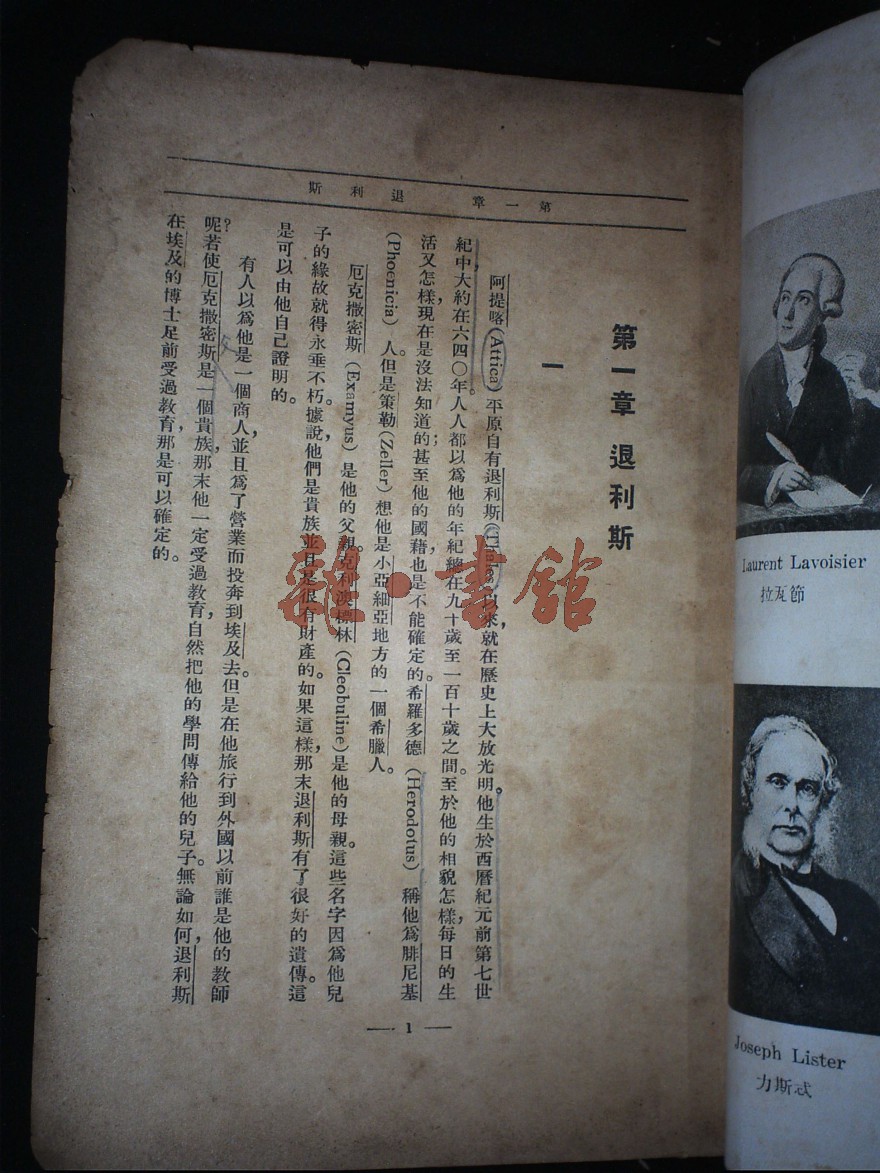 第一章　退利斯
第一章 退利斯
一
阿提喀(Attica)平原自有退利斯(Thales)以來，就在歷史上大放光明。他生於西曆紀元前第七世
紀中，大約在六四〇年。人人都以爲他的年紀總在九十歲至一百十歲之間。至於他的相貌怎樣，每日的生
活又怎樣，現在是沒法知道的；甚至他的國藉，也是不能確定的。希羅多德 (Herodotus) 稱他爲腓尼基
(Phoenicia) 人。但是策勒(Zeller)想他是小亞細亞地方的一個希臘人。
厄克撒密斯 (Examyus) 是他的父親。克利澳標林 (Cleobuline)是他的母親。這些名字因爲他兒
子的緣故就得永垂不朽。據說，他們是貴族並且是很有財產的。如果這樣，那末退利斯有了很好的遺傳。這
是可以由他自己證明的。
有人以爲他是一個商人，並且爲了營業而投奔到埃及去。但是在他旅行到外國以前誰是他的教師
呢？若使厄克撒密斯是一個貴族，那末他一定受過教育，自然把他的學問傳給他的兒子。無論如何，退利斯
在埃及的博士足前受過教育，那是可以確定的。
— 1 —
Laurent Lavoisier
拉瓦節
Joseph Lister
力斯忒
雜·書館